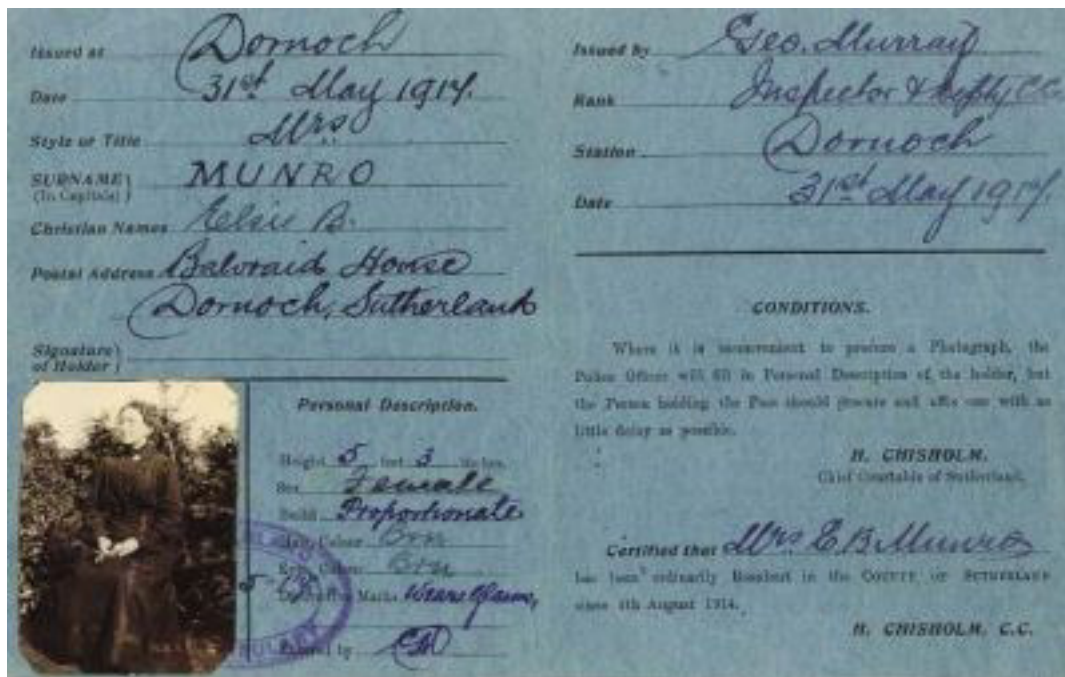 Issued at Dornoch
Date 31st May 1917.
Style or Title Mrs.
SURNAME } MUNRO
(In Capitals)
Christian Names Elsie B.
Postal Address Balvraid House
Dornoch, Sutherland
Signature }
of Holder }
Personal Description.
Height 5 feet 3 inches.
Sex Female
Build Proportionate
Hair, Colour Brn
Eyes, Colour Brn
Distinctive Marks Wears Glasses,
by
Issued by Geo. Murray
Rank Inspector & Depty C.C.
Station Dornoch
Date 31st May 1917.
CONDITIONS.
Where it is inconvenient to procure a Photograph, the
Police Officer will fill in Personal Description of the holder, but
the Person holding the Pass should procure and affix one with as
little delay as possible.
H. CHISHOLM.
Chief Constable of Sutherland.
Certified that Mrs E B Munro
has been ordinarily Resident in the COUNTY OF SUTHERLAND
since 4th August 1914.
H. CHISHOLM, C.C.